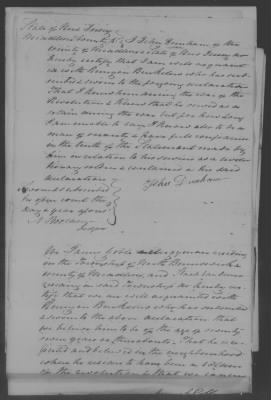 State of New Jersey
Middlesex County Ss, I John Dunham of the
county of Middlesex & State of New Jersey do
hereby certify that I am well acquaint
ed with Runyon Bunkelew who has sub
scribed & sworn to the foregoing declaration
That I knew him during the war of the
Revolution & know that he served as a
during the war but for how long
I am unable to say I know also to be a
man of veracity & have full confidence
in the truth of the Statement made by
him in relation to his services as a revolu
tionary soldier contained in his said
declaration
John Dunham
Sworn & subscribed
in open court the
day & year aforesaid
We
residing
in the Township of North Brunswick &
county of Middlesex, and
residing in said Township do hereby cer
tify that we are well acquainted with
Runyon Bunkelew who has subscribed
& sworn to the above declaration, that
we believe him to be of the age of seventy
seven years or thereabouts. That he is re
puted and believed in the neighbourhood
where he resides to have been a soldier
of the revolution & that we concur